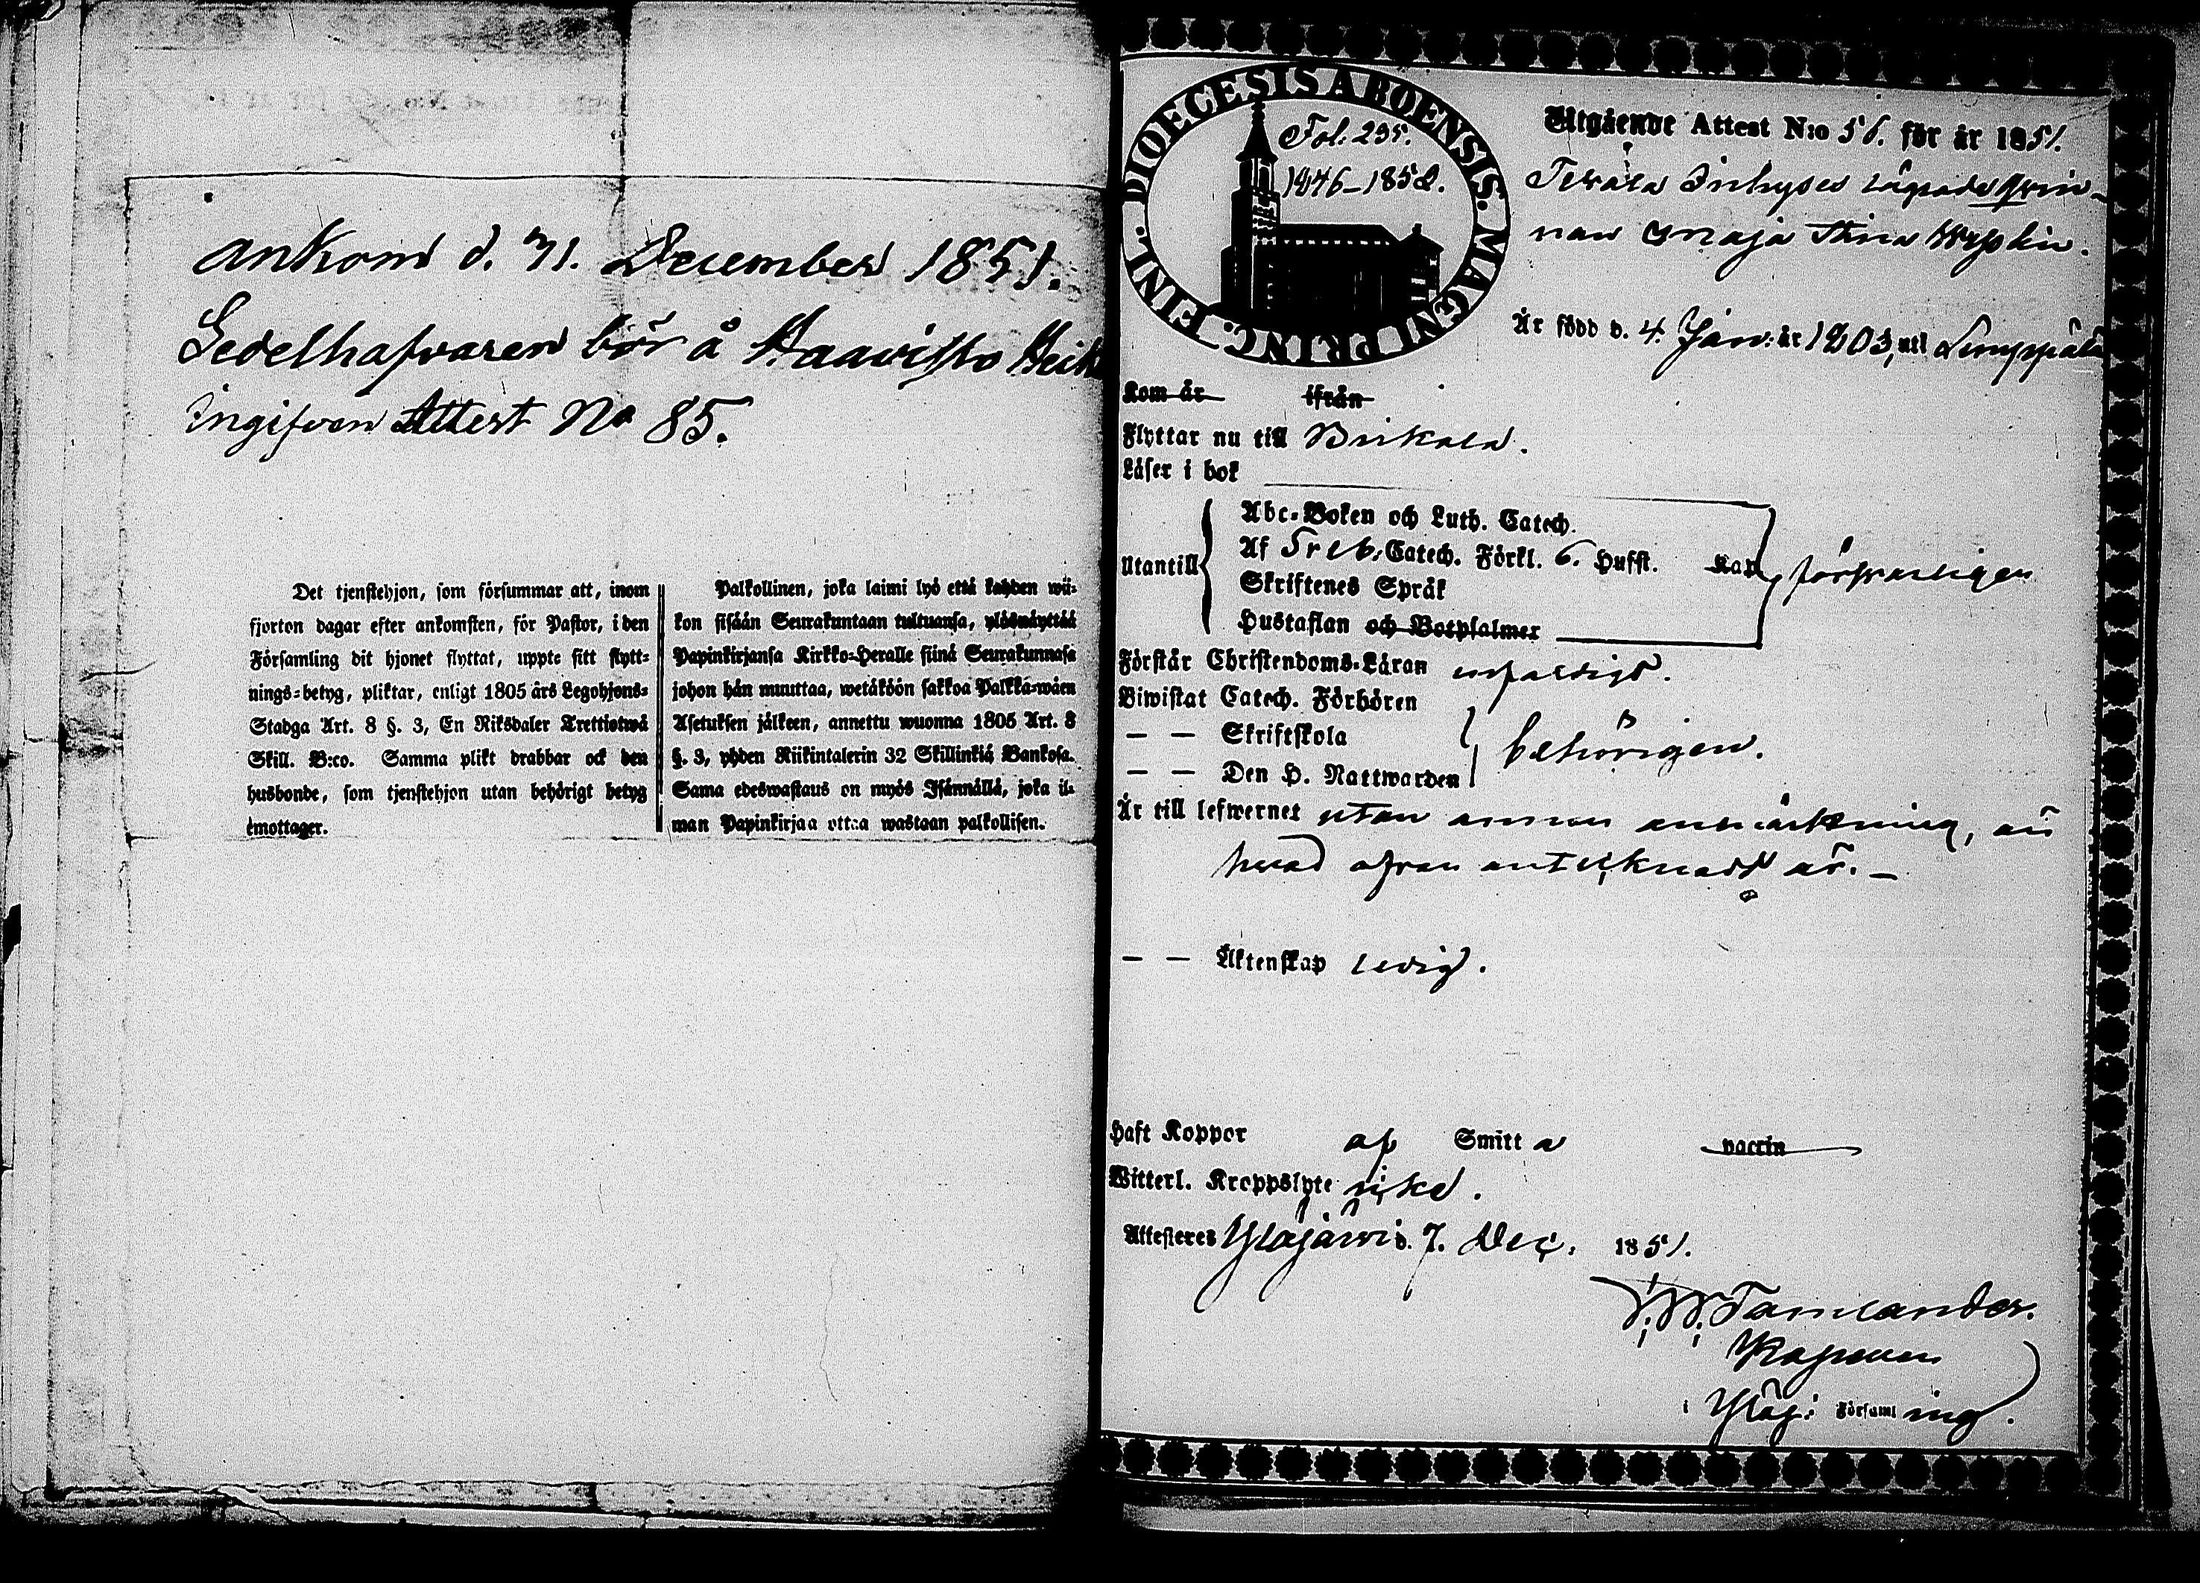 ankom d. 31. December 1851.
Sedelhafvaren bör å Haavisto Heik
Ingifven Attest No 85.
Det tjenstehjon, som försummar att, inom
fjorton dagar efter ankomsten, för Pastor, i den
Församling dit hjonet flyttat, uppte sitt flytt-
nings-betyg, pliktar, enligt 1805 års Legohjons-
Stadga Art. 8 §. 3, En Riksdaler Trettiotwå
Skill. B:co. Samma plikt drabbar ock den
husbonde, som tjenstehjon utan behörigt betyg
emottager.
Palkollinen, joka laimi lyö että kahden wii-
kon sisään Seurakuntaan tultuansa, ylösnäyttää
Papinkirjansa Kirkko-Heralle siinä Seurakunnasa
johon hän muuttaa, wetäköön sakkoa Palkka-wäen
Asetuksen jälkeen, annettu wuonna 1805 Art. 8
§. 3, yhden Riikintalerin 32 Skillinkiä Bankosa.
Sama edeswastaus on myös Isännällä, joka il-
man Papinkirjaa ottaa wastaan palkollisen.
DIOECESIS ABOENSIS. MAGNI PRINC. FINL.
Fol. 295.
1846-1852.
Utgående Attest N:o 56. för år 1851.
Inhyses qwin-
nan Maja Stina
Är född d. 4. Jan. år 1803, uti Lempäälä
Kom år ifrån
Flyttar nu till Birkala.
Läser i bok
Utantill
Abc-Boken och Luth. Catech.
Af Catech. Förkl. 6. Hufst. Kap
Skriftenes Språk
Hustaflan och Botpsalmer
försvarligen
Förstår Christendoms-Läran enfaldigt.
Biwistat Catech. Förhören
— — Skriftskola
— — Den H. Nattwarden
behörigen.
Är till lefwernet utan annan anmärkning, än
hvad ofvan antecknadt är. —
— — Äktenskap ledig.
Haft Koppor af Smitta vaccin
Witterl. Kroppslyte icke.
Attesteres Ylöjärvi d. 7. Dec. 1851.
Tamlander.
i Ylöj: Församling.